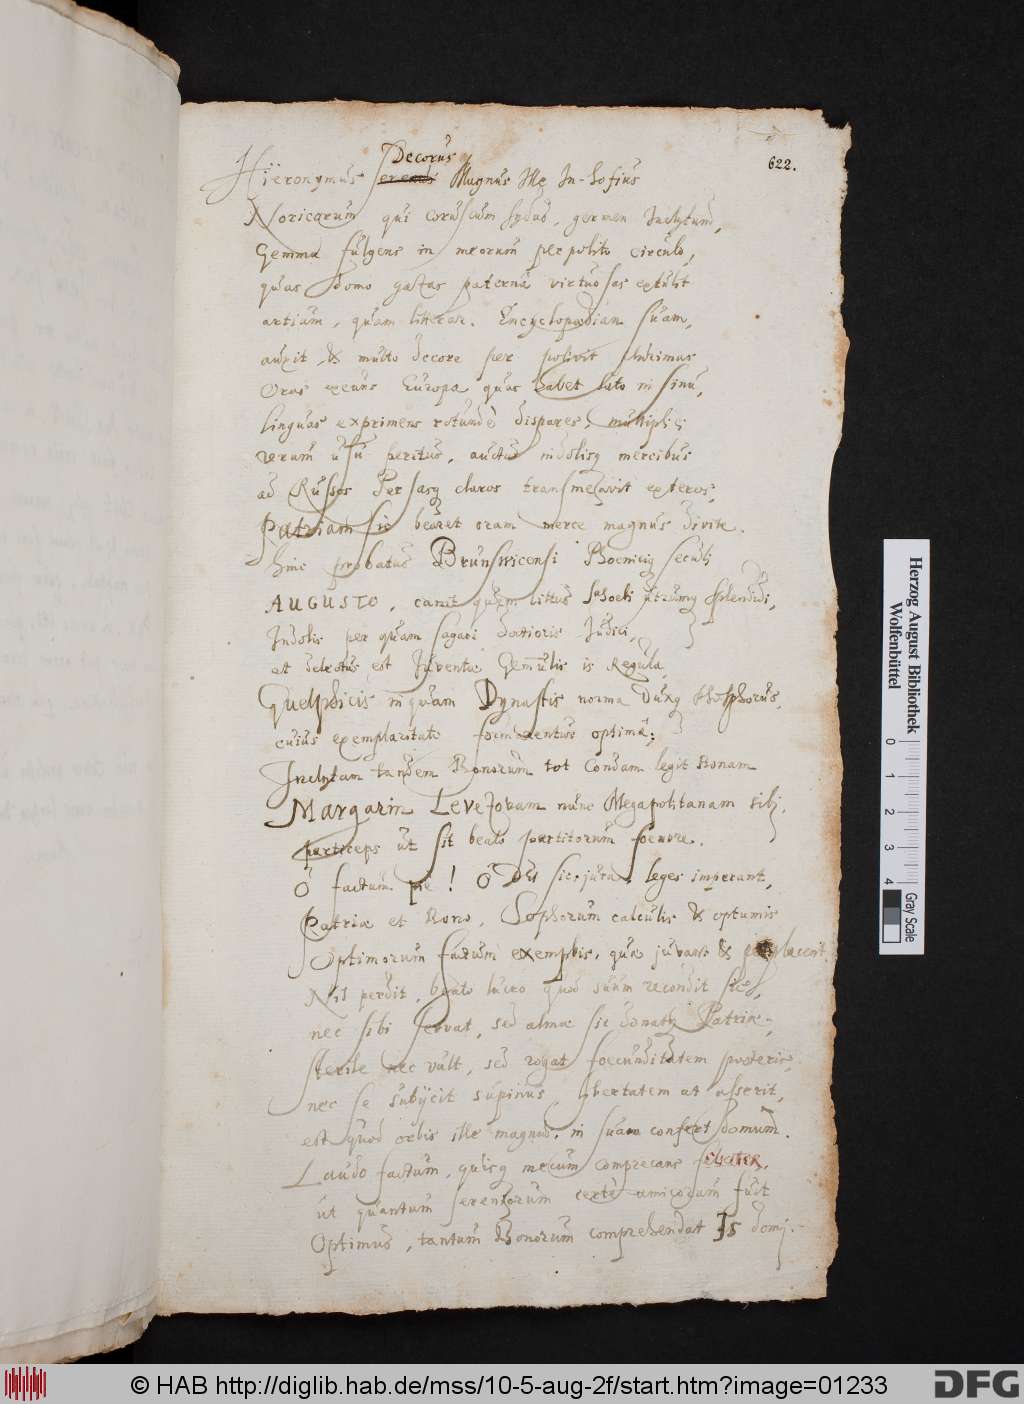 622.
Decorus
Hieronymus Magnus Im-hofius
Noricorum qui coruscum sydus, germen Inclytum,
Gemma fulgens in meorum perpolito circulo,
quas domo gazas paterna virtuosas extulit
artium, quam litterar. Encyclopædiam suam,
auxit, & multo decore per polivit plurimus
Oras exuens Europa quas habet lato in sinu,
linguas exprimens rotundè dispares, multiplici
verum usu peritus, auctus indolisq mercibus
ad Russos Persasq claros transmeavit exteros,
Patriam sic bearet oram merce magnus divite.
hinc probatus Brunswicensi Phoenicig seculi
AUGUSTO, canit quem littus Phoebi utrumq splendidi,
Indolis per quam sagaci doctioris Judici,
et delectus est Juventæ Gemulis is Regula,
Guelphicis inquam Dynastis norma Duxq phosphorus,
cuius exemplaritate formarentur optimâ;
Inclytam tandem Bonorum tot Condam legit Bonam
Margarin Levezovam nunc Megapolitanam sibi,
particeps ut sit beato partitorum foenore.
O factum pie! O Dei sic jura, leges imperant,
Patriæ et Bono, Sophorum calculis & optumis
Optimorum factum exemplis, quæ juvant &
Nil perdit, beato lucro quod suum recondit sic,
nec sibi servat, sed almæ sic donatq Patriæ;
sterile nec vult, sed rogat foecunditatem posteris,
nec se subijcit supinus, libertatem at asserit,
est quod orbis ille magnus, in suam confert domum.
Laudo factum, quisq mecum comprecans
ut quantum sereniorum certè amicorum fuit
Optimus, tantum Bonorum comprehendat Is domi.
Herzog August Bibliothek
Wolfenbüttel
0 1 2 3 4
Gray Scale
© HAB http://diglib.hab.de/mss/10-5-aug-2f/start.htm?image=01233
DFG